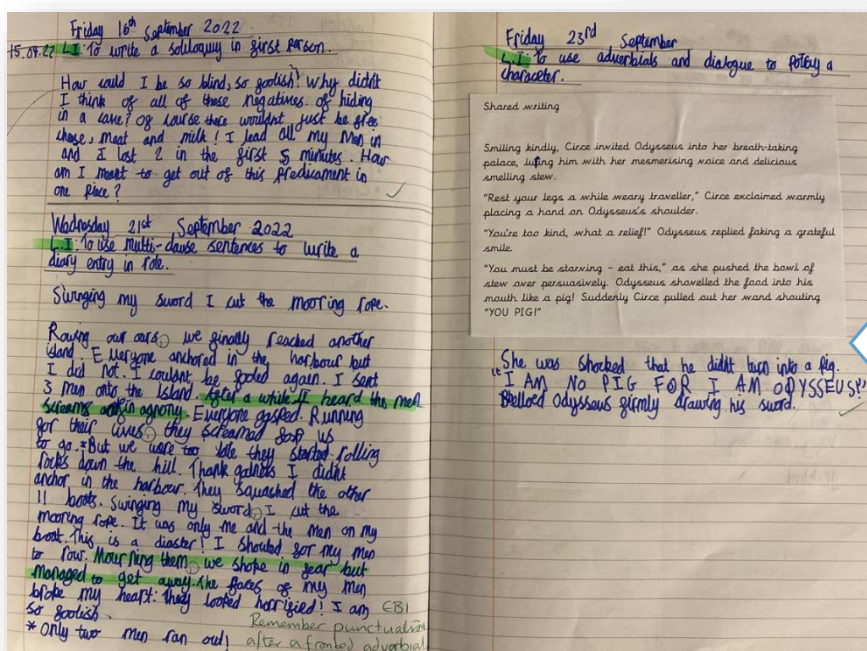 Friday 16th September 2022
15.09.22 L.I: To write a soliloquy in first person.
How could I be so blind, so foolish! Why didn't
I think of all of these negatives. of hiding
in a cave? Of course there wouldnt just be free
chese, meat and milk! I lead all my men in
and I lost 2 in the first 5 minutes. How
am I meant to get out of this predicament in
one piece?
Wednesday 21st September 2022
L.I: To use multi-clause sentences to write a
diary entry in role.
Swinging my sword I cut the mooring rope.
Rowing our oars, we finally reached another
island. Everyone anchored in the harbour but
I did not. I couldnt be fooled again. I sent
3 men onto the island. After a while I heard the men
screams in agnony. Everyone gasped. Running
for their lives, they screamed for us
to go. *But we were too late they started rolling
rocks down the hill. Thank I didnt
anchor in the harbour. They squashed the other
11 boats. Swinging my sword, I cut the
mooring rope. It was only me and the men on my
boat. This is a diaster! I shouted for my men
to row. Mourning them, we shoke in fear but
managed to get away. The faces of my men
broke my heart: they looked horrified! I am
so foolish.
* Only two men ran out!
EBI
Remember punctuation
after a fronted adverbial
Friday 23rd September
L.I: To use adverbials and dialogue to potray a
character.
Shared writing
Smiling kindly, Circe invited Odysseus into her breath-taking
palace, luring him with her mesmerising voice and delicious
smelling stew.
"Rest your legs a while weary traveller," Circe exclaimed warmly
placing a hand on Odysseus's shoulder.
"You're too kind, what a relief!" Odysseus replied faking a grateful
smile.
"You must be starving - eat this," as she pushed the bowl of
stew over persuasively. Odysseus shovelled the food into his
mouth like a pig! Suddenly Circe pulled out her wand shouting
"YOU PIG!"
She was shocked that he didnt turn into a pig.
"I AM NO PIG FOR I AM ODYSSEUS!"
Belloed Odysseus firmly drawing his sword.